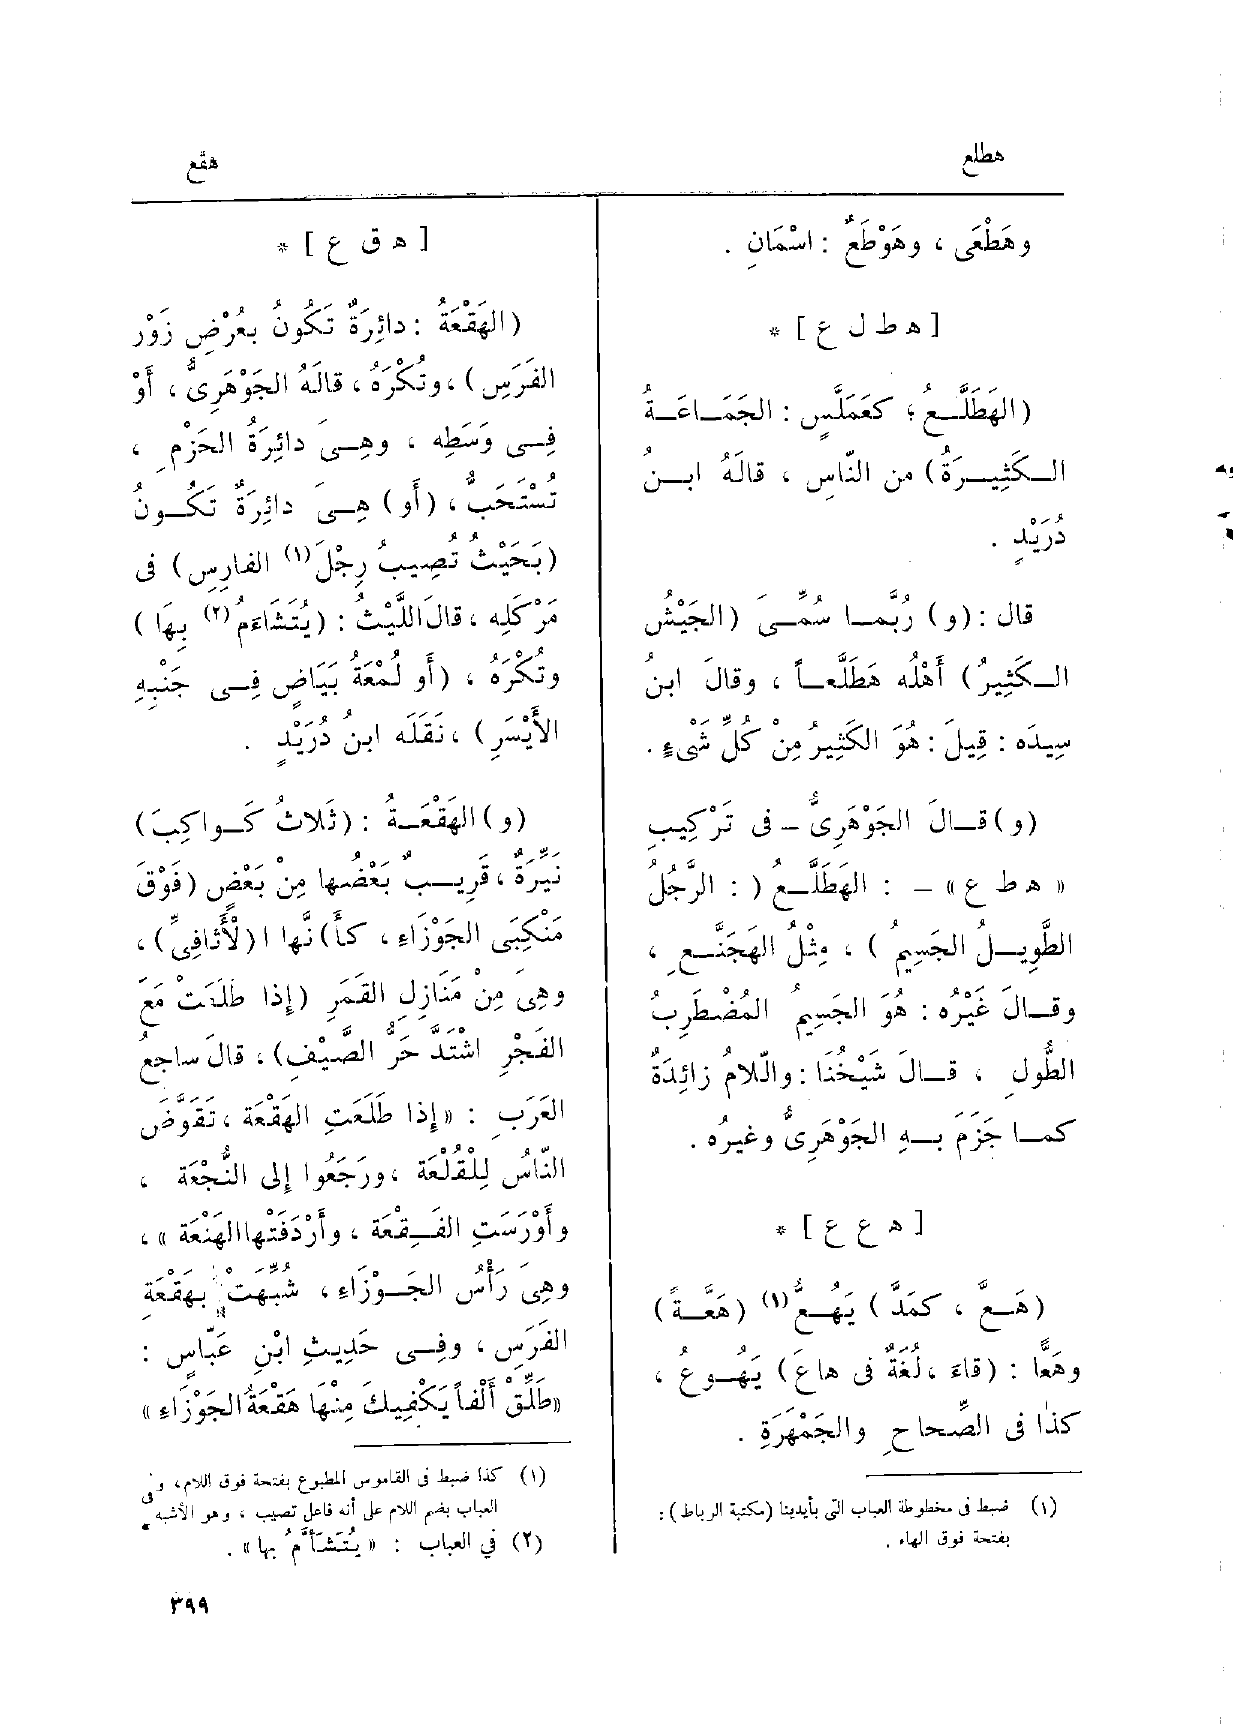 هطلع
هقع
وهَطْعَى ، وهَوْطَعٌ : اسْمَانِ .
[ ه ط ل ع ] *
(الهَطَلَّـــعُ ، كعَمَلَّسٍ : الجَمَــاعَــةُ
الــكَثِيــرَةُ) من النّاسِ ، قالَهُ ابــنُ
دُرَيْدٍ .
قال : (و) رُبَّمــا سُمِّــىَ (الجَيْشُ
الــكَثِيرُ) أَهْلُه هَطَلَّعــاً ، وقالَ ابنُ
سِيدَه : قِيلَ : هُوَ الكَثِيرُ مِنْ كُلِّ شَىءٍ .
(و) قــالَ الجَوْهَرِىُّ – فى تَرْكِيبِ
« ه ط ع » – : الهَطَلَّــع ( : الرَّجُلُ
الطَّوِيــلُ الجَسِيمُ ) ، مِثْلُ الهَجَنَّــعِ ،
وقــالَ غَيْرُه : هُوَ الجَسِيمُ المُضْطَرِبُ
الطُّولِ ، قــالَ شَيْخُنَا : والّلامُ زائِدَةٌ
كمــا جَزَم بــهِ الجَوْهَرِىُّ وغيرُه .
[ ه ع ع ] *
(هَــعَّ ، كمَدَّ ) يَهُــعُّ (١) (هَعَّــةً)
وهَعًّا : (قاءَ ، لُغَةٌ فى هاعَ) يَهُــوعُ ،
كذا فى الصِّحاحِ والجَمْهَرَةِ .
(١) ضبط فى مخطوطة العباب التى بأيدينا (مكتبة الرباط) :
بفتحة فوق الهاء .
[ ه ق ع ] *
(الهَقْعَةُ : دائِرَةٌ تَكُونُ بعُرْضِ زَوْرِ
الفَرَسِ) ، وتُكْرَهُ ، قالَهُ الجَوْهَرِىُّ ، أَوْ
فِــى وَسَطِه ، وهِــىَ دائِرَةُ الحَزْمِ ،
تُسْتَحَبُّ ، (أَو) هِــىَ دائِرَةٌ تَكُــونُ
(بَحَيْثُ تُصِيبُ رِجْلَ (١) الفارِسِ) فى
مَرْكَلِه ، قالَ اللَّيْثُ : (يُتَشَاءَمُ (٢) بِهَا )
وتُكْرَهُ ، (أَو لُمْعَةُ بَيَاضٍ فِــى جَنْبِهِ
الأَيْسَرِ) ، نَقَلَه ابنُ دُرَيْدٍ .
(و) الهَقْعَــةُ : (ثَلاثُ كَــواكِبَ)
نَيِّرَةٌ ، قَرِيــبٌ بَعْضُها مِنْ بَعْضٍ (فَوْقَ
مَنْكِبَىِ الجَوْزَاءِ ، كأَ) نَّها ا (لأَثافِىِّ) ،
وهِىَ مِنْ مَنَازِلِ القَمَرِ (إِذا طَلَعَتْ مَعَ
الفَجْرِ اشْتَدَّ حَرُّ الصَّيْفِ) ، قالَ ساجِعُ
العَرَبِ : « إِذا طَلَعَتِ الهَقْعَة ، تَقَوَّضَ
النّاسُ لِلْقُلْعَة ، ورَجَعُوا إِلى النُّجْعَة ،
وأَوْرَسَتِ الفَــقِعَة ، وأَرْدَفَتْها الهَنْعَة » ،
وهِىَ رَأْسُ الجَــوْزَاءِ ، شُبِّهَتْ بِهَقْعَةِ
الفَرَسِ ، وفِــى حَدِيثِ ابْنِ عَبّاسٍ :
« طَلِّقْ أَلْفاً يَكْفِيكَ مِنْهَا هَقْعَةُ الجَوْزَاءِ »
(١) كذا ضبط فى القاموس المطبوع بفتحة فوق اللام ، وفى
العباب بضم اللام على أنه فاعل تصيب ، وهو الأشبه .
(٢) في العباب : « يُتَشَأَّمُ بها » .
٣٩٩